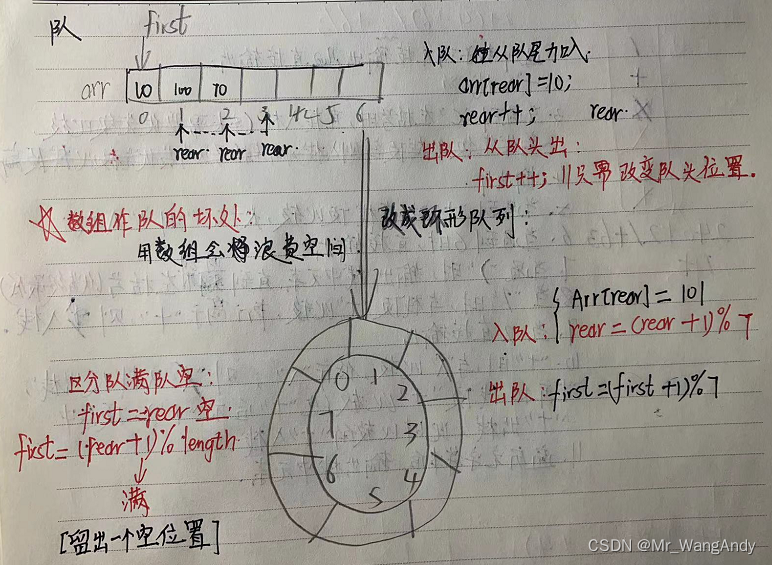 队
first
入队: 从队尾加入.
arr
10 100 70
arr[rear]=10;
0 1 2 3 4 5 6
rear++; rear.
rear. rear rear.
出队: 从队头出:
first++; //只需改变队头位置.
☆数组作队的坏处:
用数组会浪费空间.
改成环形队列:
入队:
Arr[rear]=101
rear=(rear+1)%7
出队: first=(first+1)%7
区分队满队空:
first=rear 空.
first=(rear+1)%length
满
[留出一个空位置]
0 1 2 3 4 5 6 7
CSDN @Mr_WangAndy